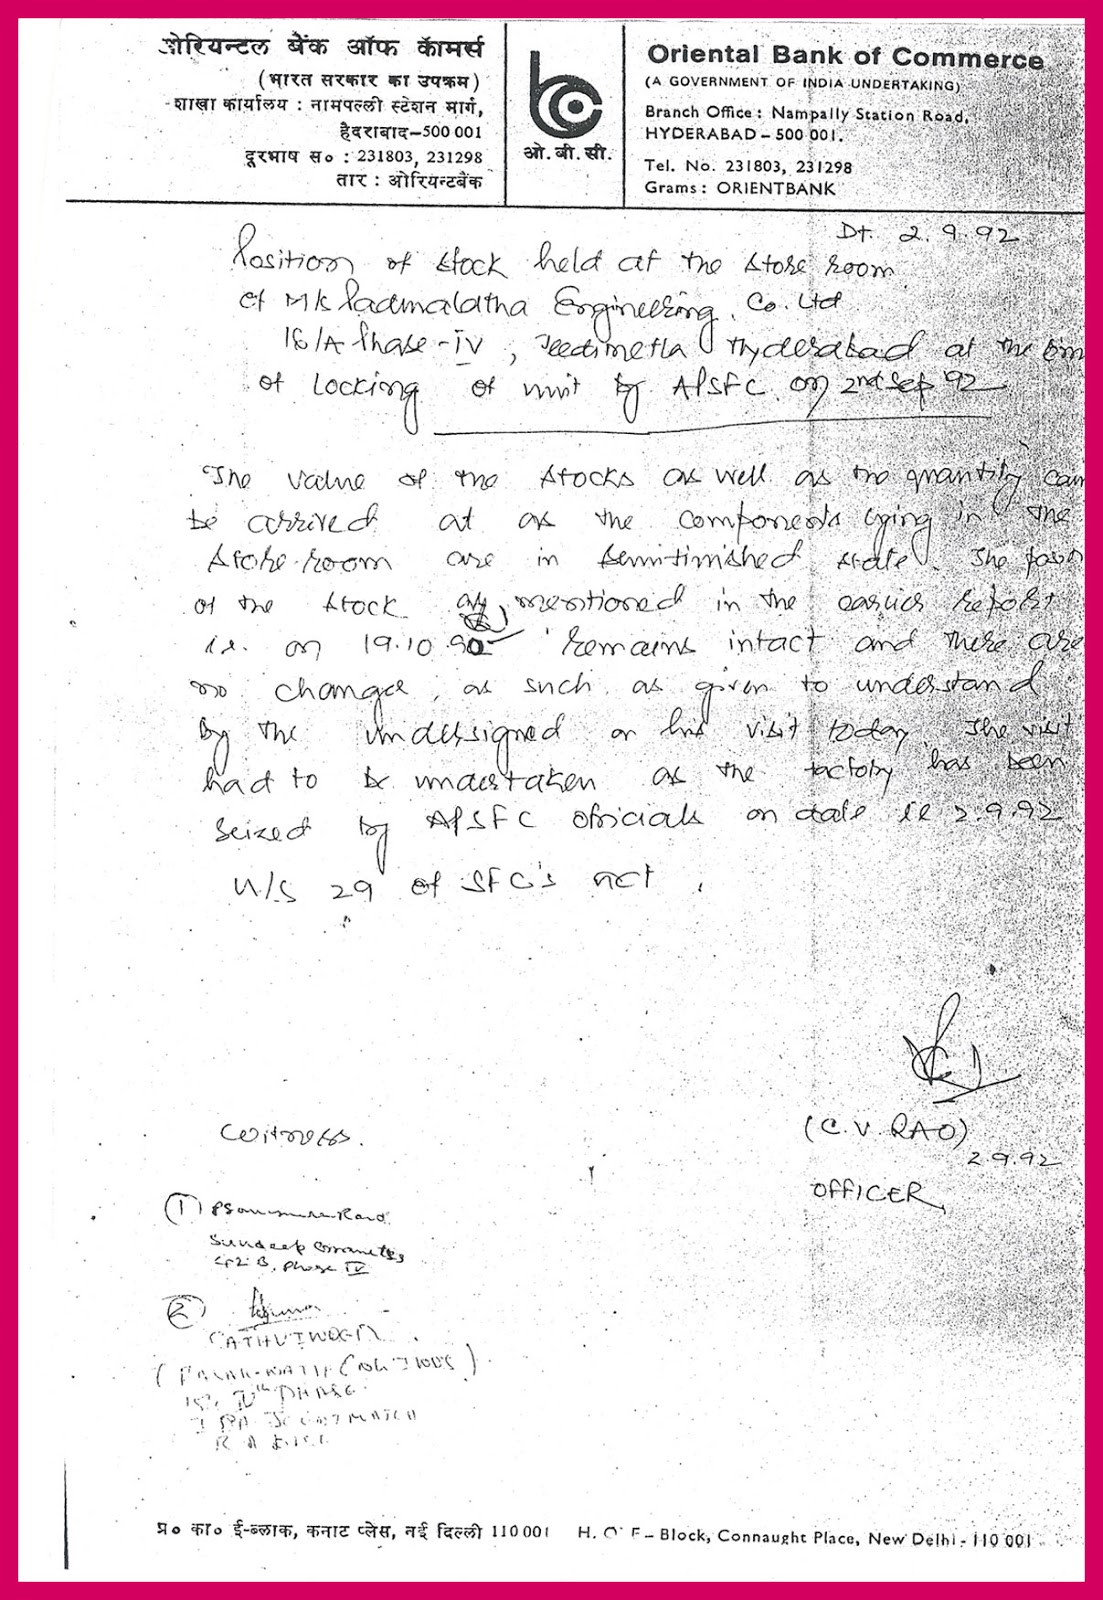 ओरियन्टल बैंक ऑफ कॅामर्स
(भारत सरकार का उपक्रम)
शाखा कार्यालय : नामपल्ली स्टेशन मार्ग,
हैदराबाद-500 001
दूरभाष स० : 231803, 231298
तार : ओरियन्टबैंक
ओ. बी. सी.
Oriental Bank of Commerce
(A GOVERNMENT OF INDIA UNDERTAKING)
Branch Office : Nampally Station Road,
HYDERABAD - 500 001.
Tel. No. 231803, 231298
Grams : ORIENTBANK
Dt. 2.9.92
Position of stock held at the store room
of M/s Padmalatha Engineering Co. Ltd
16/A Phase-IV, Jeedimetla Hyderabad at the
of Locking of unit by APSFC on 2nd Sep 92
The value of the stocks as well as the quantity
be arrived at as the components lying in the
store-room are in semifinished state. The
of the stock as mentioned in the earlier report
i.e. on 19.10.90 remains intact and there are
no changes, as such as given to understand
by the undersigned on his visit today. The visit
had to be undertaken as the factory has been
seized by APSFC officials on date ie 2.9.92
u/s 29 of SFC's Act.
(C. V. RAO)
2.9.92
OFFICER
Witness.
(1)
Sundeep
Phase IV
(2)
प्र० का० ई-ब्लाक, कनाट प्लेस, नई दिल्ली 110 001 H. O. E - Block, Connaught Place, New Delhi - 110 001